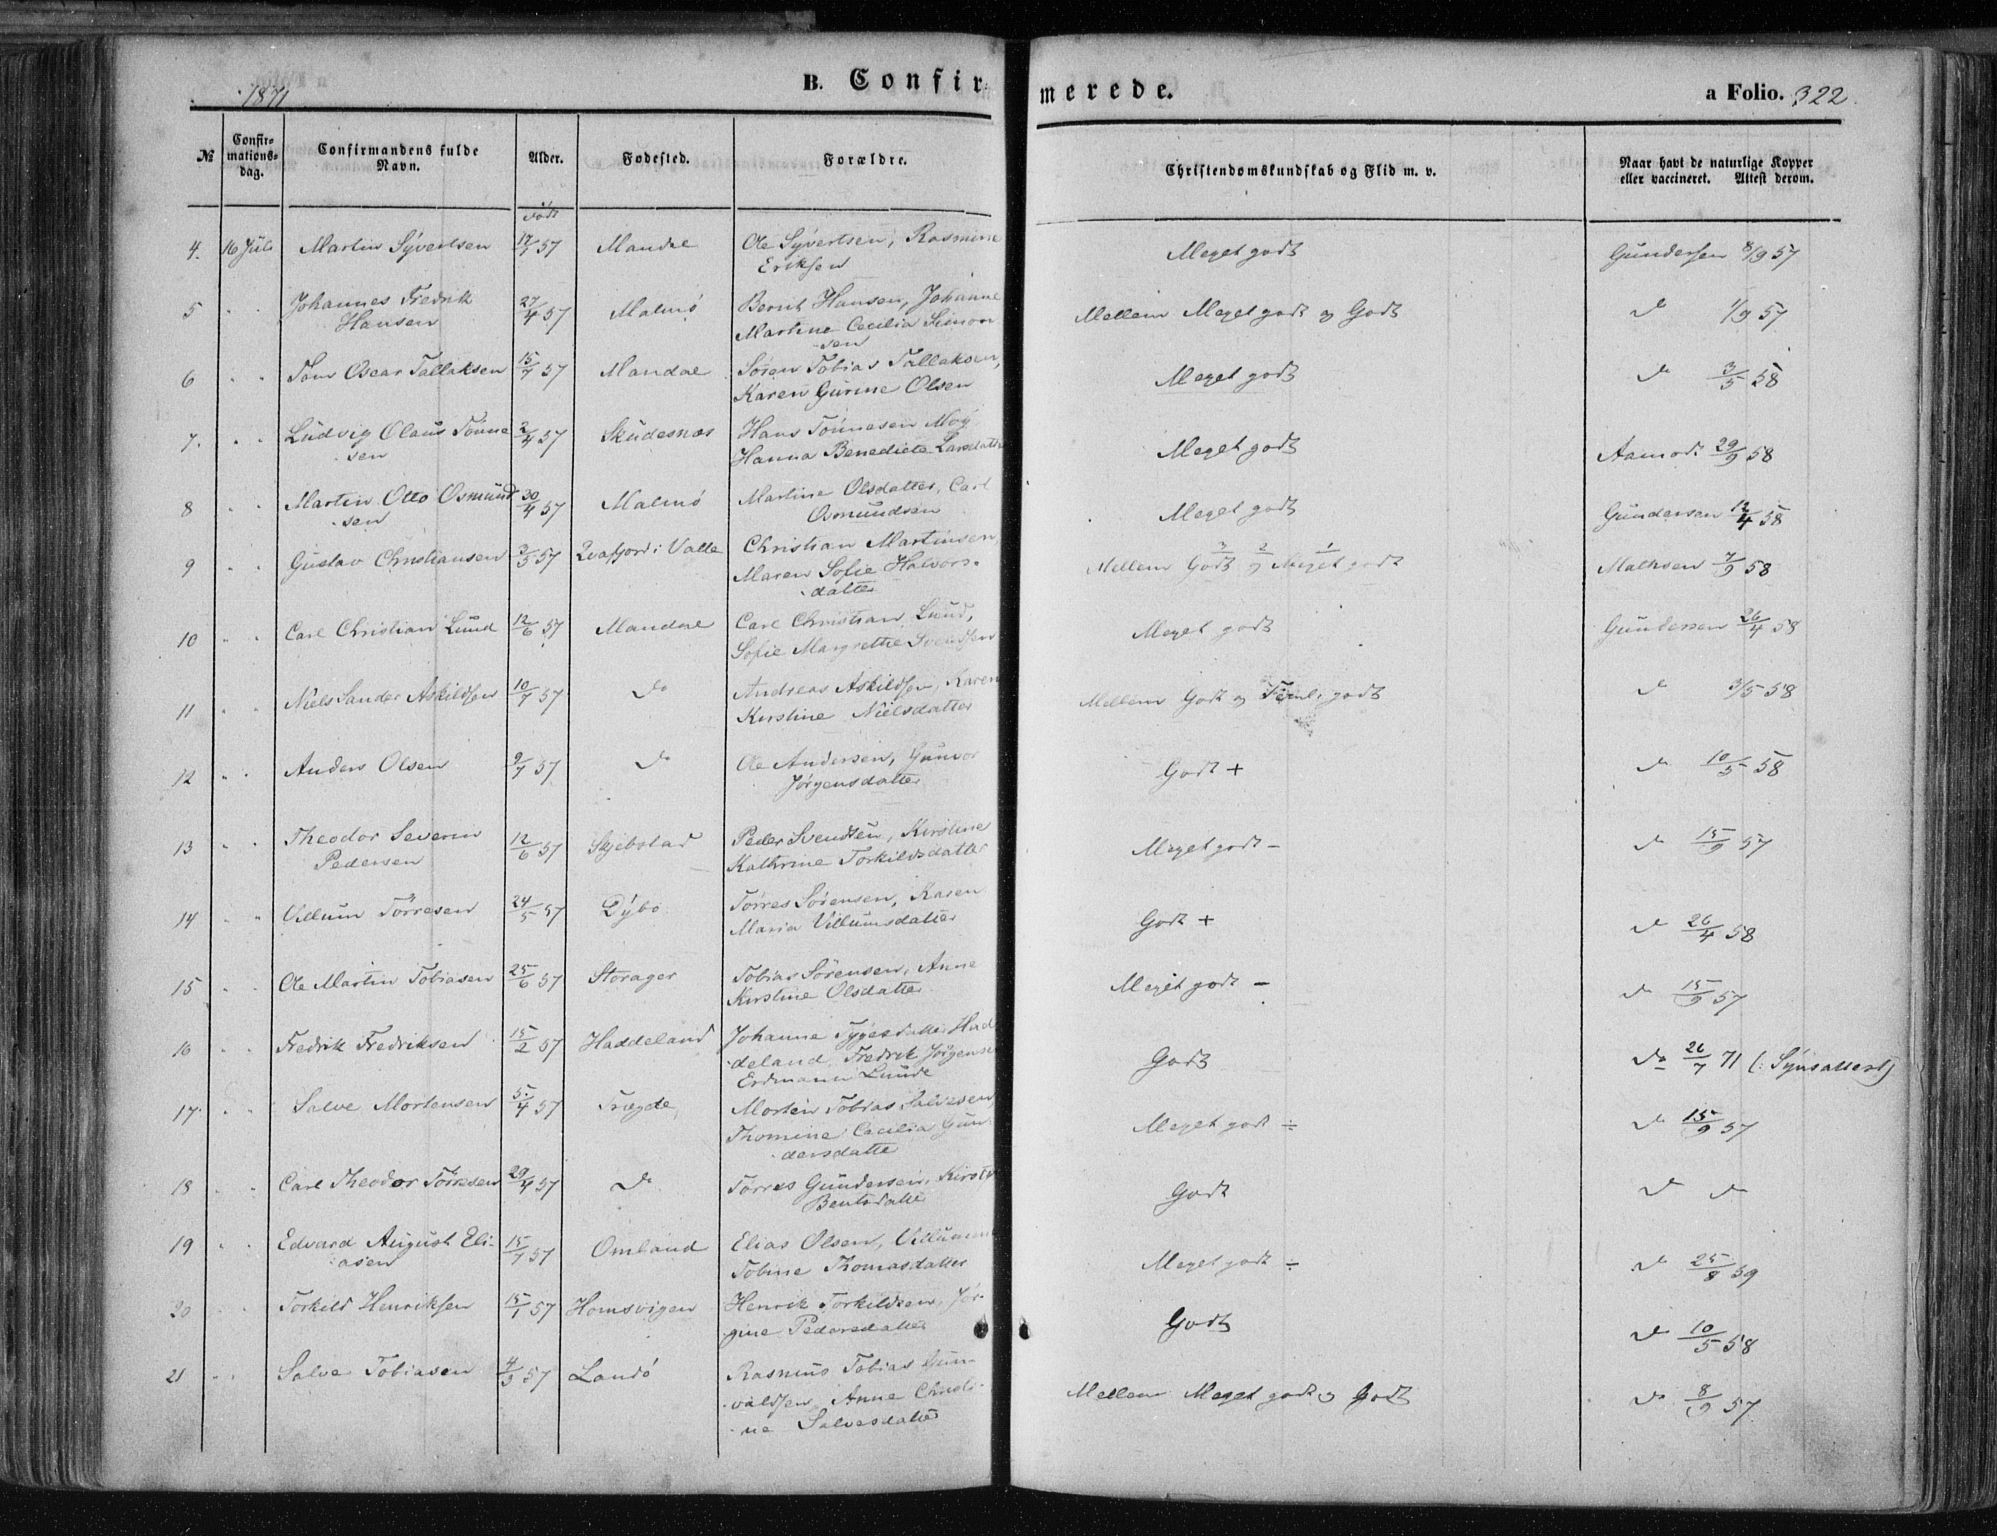 1871 B. Confirmerede. a Folio. 322
№ Confirmationsdag. Confirmandens fulde Navn. Alder. Fødested. Forældre. Christendomskundskab og Flid m. v. Naar havt de naturlige Kopper eller vaccineret. Attest derom.
født
4. 16 Juli Martin Syvertsen 17/7 57 Mandal Ole Syvertsen, Rasmine Meget godt Gundersen 8/9 57
Eriksen
5 " " Johannes Fredrik 27/4 57 Malmø Bernt Hansen, Johanne Mellem Meget godt og Godt do 1/9 57
Hansen Martine Cecilia Simon
sen
6 " " Oscar Tallaksen 15/7 57 Mandal Søren Tobias Tallaksen, Meget godt do 3/5 58
Karen Gurine Olsen
7. " " Ludvig Olaus Tønne 2/4 57 Skudesnæs Hans Tønnesen Moy Meget godt Aamodt 29/9 58
sen Hanna Benedicte Larsdatter
8 " " Martin Otto Osmund 30/4 57 Malmø Martine Olsdatter, Carl Meget godt Gundersen 12/4 58
sen Osmundsen
9 " " Gustav Christiansen 3/5 57 i Valle Christian Martinsen, Mellem Godt og Meget godt Mathsen 7/9 58
Maren Sofie Halvors-
datter
10 " " Carl Christian Lund 12/6 57 Mandal Carl Christian Lund, Meget godt Gundersen 26/4 58
Sofie Margrethe Svendsen
11 " " Niels Sander Askildsen 10/7 57 do Andreas Askildsen, Karen Mellem Godt og Teml. godt do 3/5 58
Kirstine Nielsdatter
12 " " Anders Olsen 9/7 57 do Ole Andersen, Gunvor Godt + do 10/5 58
Jørgensdatter
13 " " Theodor Severin 12/6 57 Skjebstad Peder Svendsen, Kirstine Meget godt - do 15/9 57
Pedersen Kathrine Torkildsdatter
14 " " Villum Tørresen 24/5 57 Dybo Tørres Sørensen, Karen Godt + do 26/4 58
Maria Villumsdatter
15 " " Ole Martin Tobiasen 25/6 57 Storager Tobias Sørensen, Anne Meget godt - do 15/9 57
Kirstine Olsdatter
16 " " Fredrik Fredriksen 15/2 57 Haddeland Johanne Tygesdatter Had Godt do 26/7 71 (: Synsattest)
deland, Fredrik Jørgensen
Erdmann Lunde
17. " " Salve Mortensen 5/4 57 Trægde Morten Tobias Salvesen, Meget godt ÷ do 15/9 57
Thomine Cecilia Gun
dersdatter
18 " " Carl Theodor Tørresen 29/4 57 do Tørres Gundersen, Kirsti Godt do do
Bentsdatter
19 " " Edvard August Eli- 15/7 57 Omland Elias Olsen, Villumine Meget godt ÷ do 25/8 59
asen Tobine Thomasdatter
20 " " Torkild Henriksen 15/1 57 Homsvigen Henrik Torkildsen, Jør- Godt do 10/5 58
gine Pedersdatter
21 " " Salve Tobiasen 4/3 57 Landø Rasmus Tobias Gun- Mellem Meget godt og Godt do 8/9 57
valdsen, Anne Christi-
ne Salvesdatter